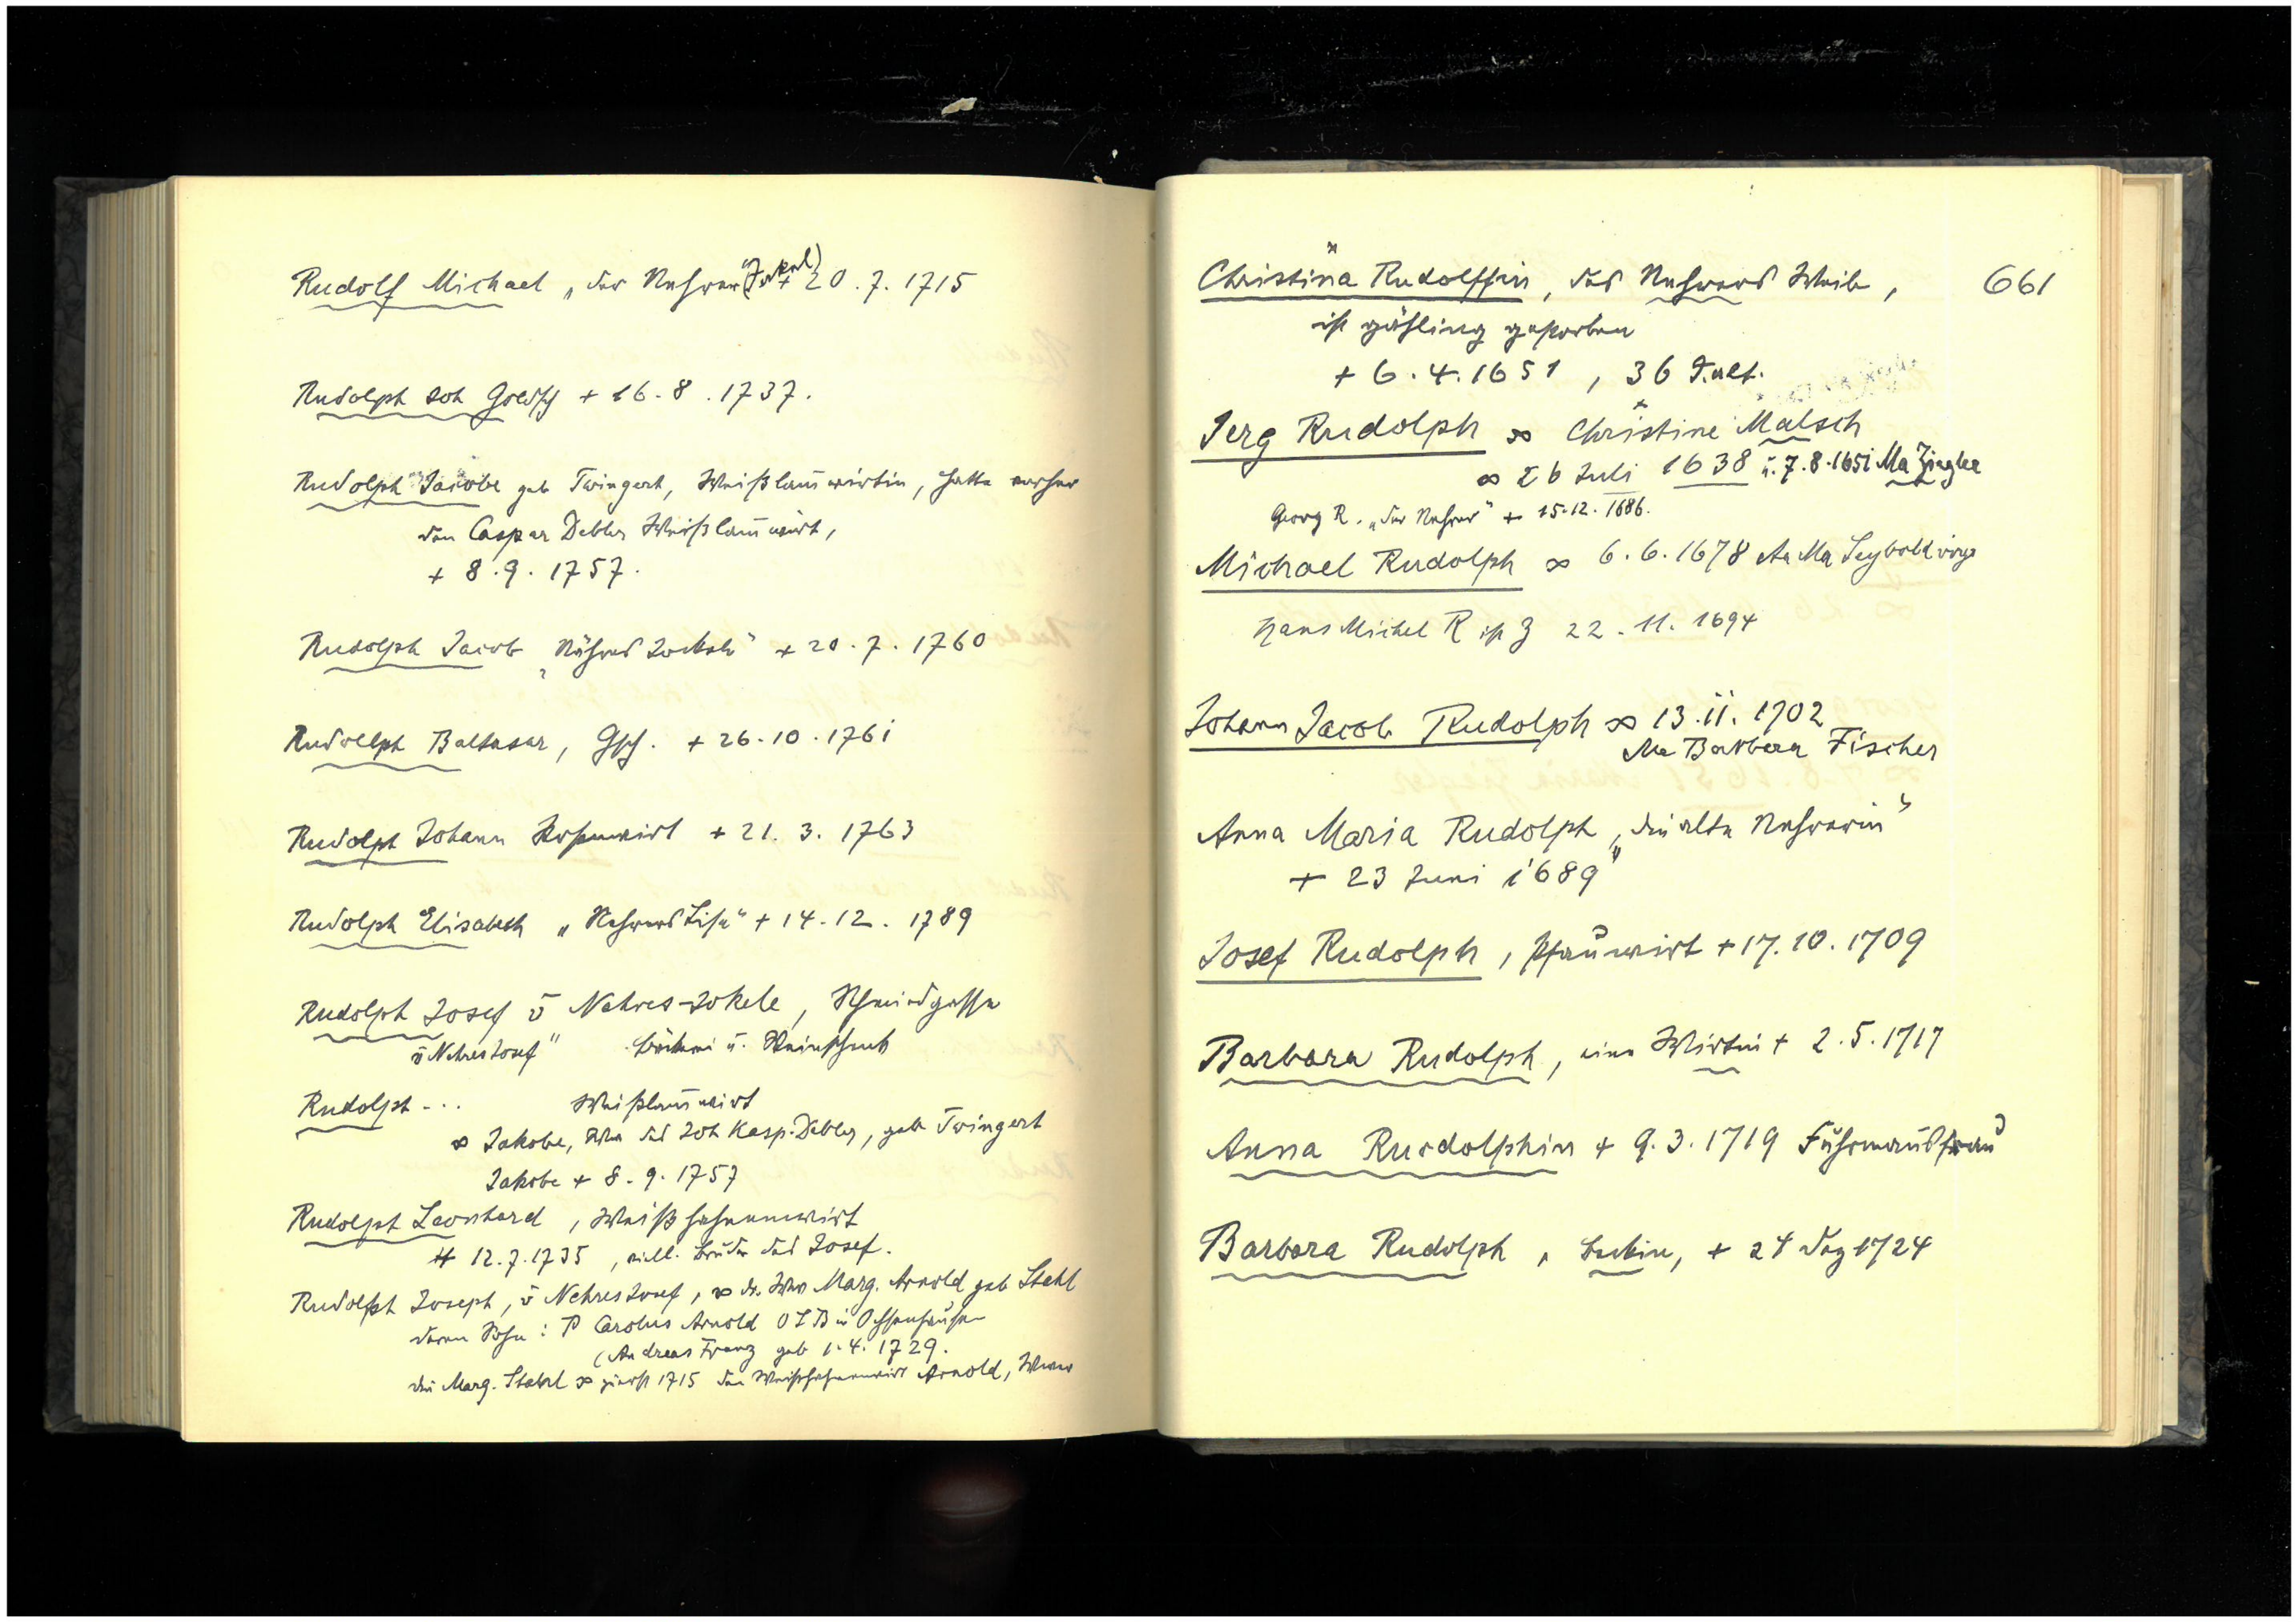 Rudolf Michael „der Nehrer" (Jokel) + 20. 7. 1715
Rudolph Joh Goldsch + 16. 8. 1737.
Rudolph Jacobe geb Twingert, Weißlam̄wirtin, hatte vorher
den Caspar Debler Weißlam̄wirt,
+ 8. 9. 1757.
Rudolph Jacob „Nähres Jockele" + 20. 7. 1760
Rudolph Baltasar, Gsch. + 26. 10. 1761
Rudolph Johann Rosenwirt + 21. 3. 1763
Rudolph Elisabeth „Nehrers Lise" + 14. 12. 1789
Rudolph Josef v Nehres-Jokele, Schmiedgasse
v Nehres Josef" Bäckerei u. Weinschenk
Rudolph ... Weißlam̄wirt
∞ Jakobe, Wwe des Joh Kasp. Debler, geb Twingert
Jakobe + 8. 9. 1757
Rudolph Leonhard, Weißhahnenwirt
+ 12. 7. 1735, viell. Bruder des Josef.
Rudolph Joseph, v Nehres Josef, ∞ die Wwe Marg. Arnold geb Stahl
deren Sohn: P Carolus Arnold OSB in Ochsenhausen
(Andreas Franz geb 1. 4. 1729.
die Marg. Stahl ∞ zuerst 1715 den Weißhahnenwirt Arnold, Wwer
661
Christina Rudolffin, des Nehrers Weib,
ist gähling gestorben
+ 6. 4. 1651, 36 J. alt.
Jerg Rudolph ∞ Christine Malsch
∞ 26 Juli 1638 u. 7. 8. 1651 Ma Ziegler
Georg R. „der Nehrer" + 15. 12. 1686.
Michael Rudolph ∞ 6. 6. 1678 An Ma Seybold virgo
Hans Michel R ist Z 22. 11. 1694
Johann Jacob Rudolph ∞ 13. 11. 1702
Ma Barbara Fischer
Anna Maria Rudolph „die alte Nehrerin"
+ 23 Juni 1689
Josef Rudolph, Pfauwirt + 17. 10. 1709
Barbara Rudolph, eine Wirtin + 2. 5. 1717
Anna Rudolphin + 9. 3. 1719 Fuhrmannsfrau
Barbara Rudolph, Beckin, + 24 Dez 1724